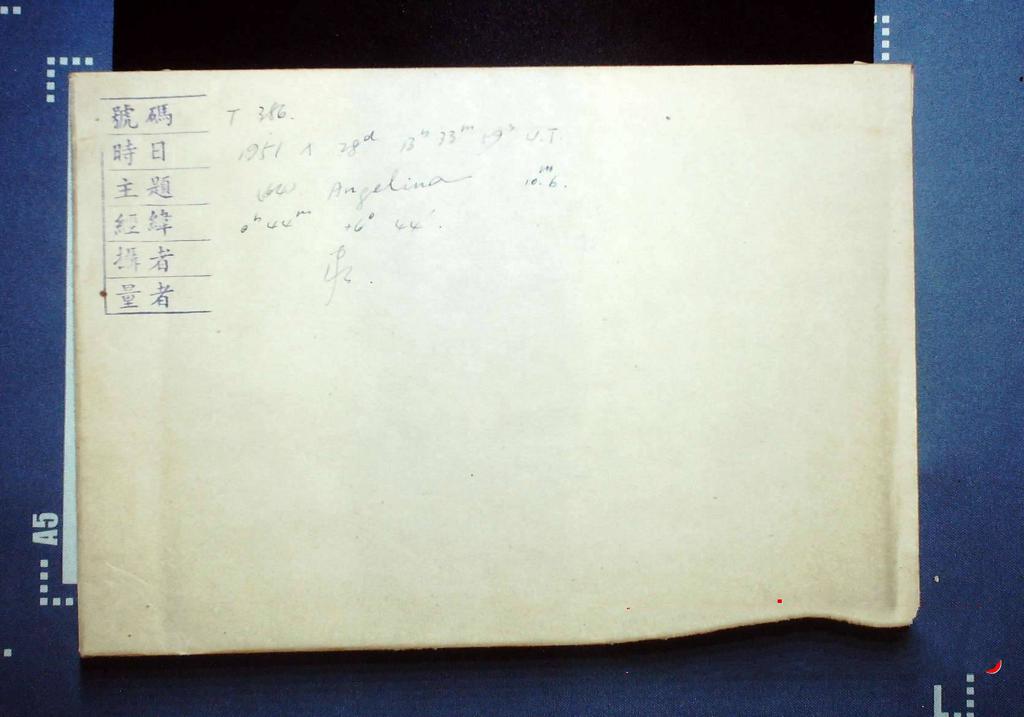 號碼 T 386.
時日 1951 X 28ᵈ 13ʰ 33ᵐ 19ˢ U.T.
主題 (64) Angelina 10.ᵐ6.
經緯 0ʰ44ᵐ +6° 44′.
攝者
量者
A5